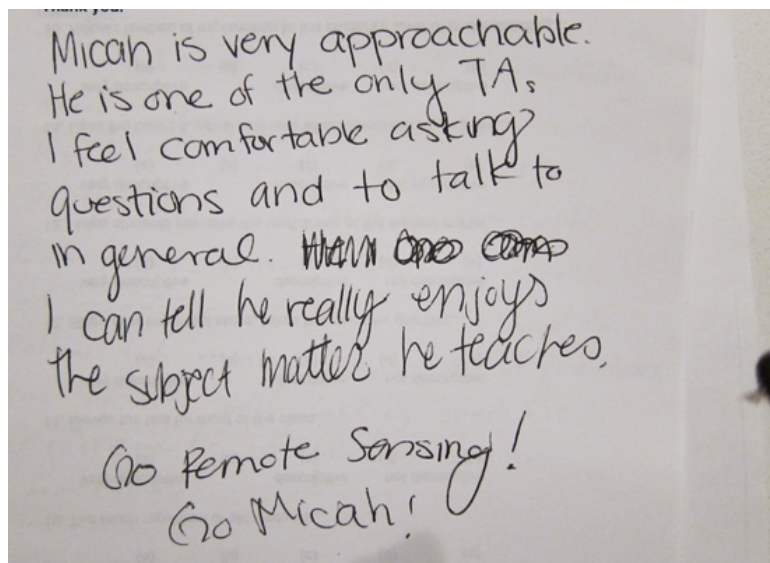 Thank you!
Micah is very approachable.
He is one of the only TAs
I feel comfortable asking
questions and to talk to
in general.
I can tell he really enjoys
the subject matter he teaches.
Go Remote Sensing!
Go Micah!